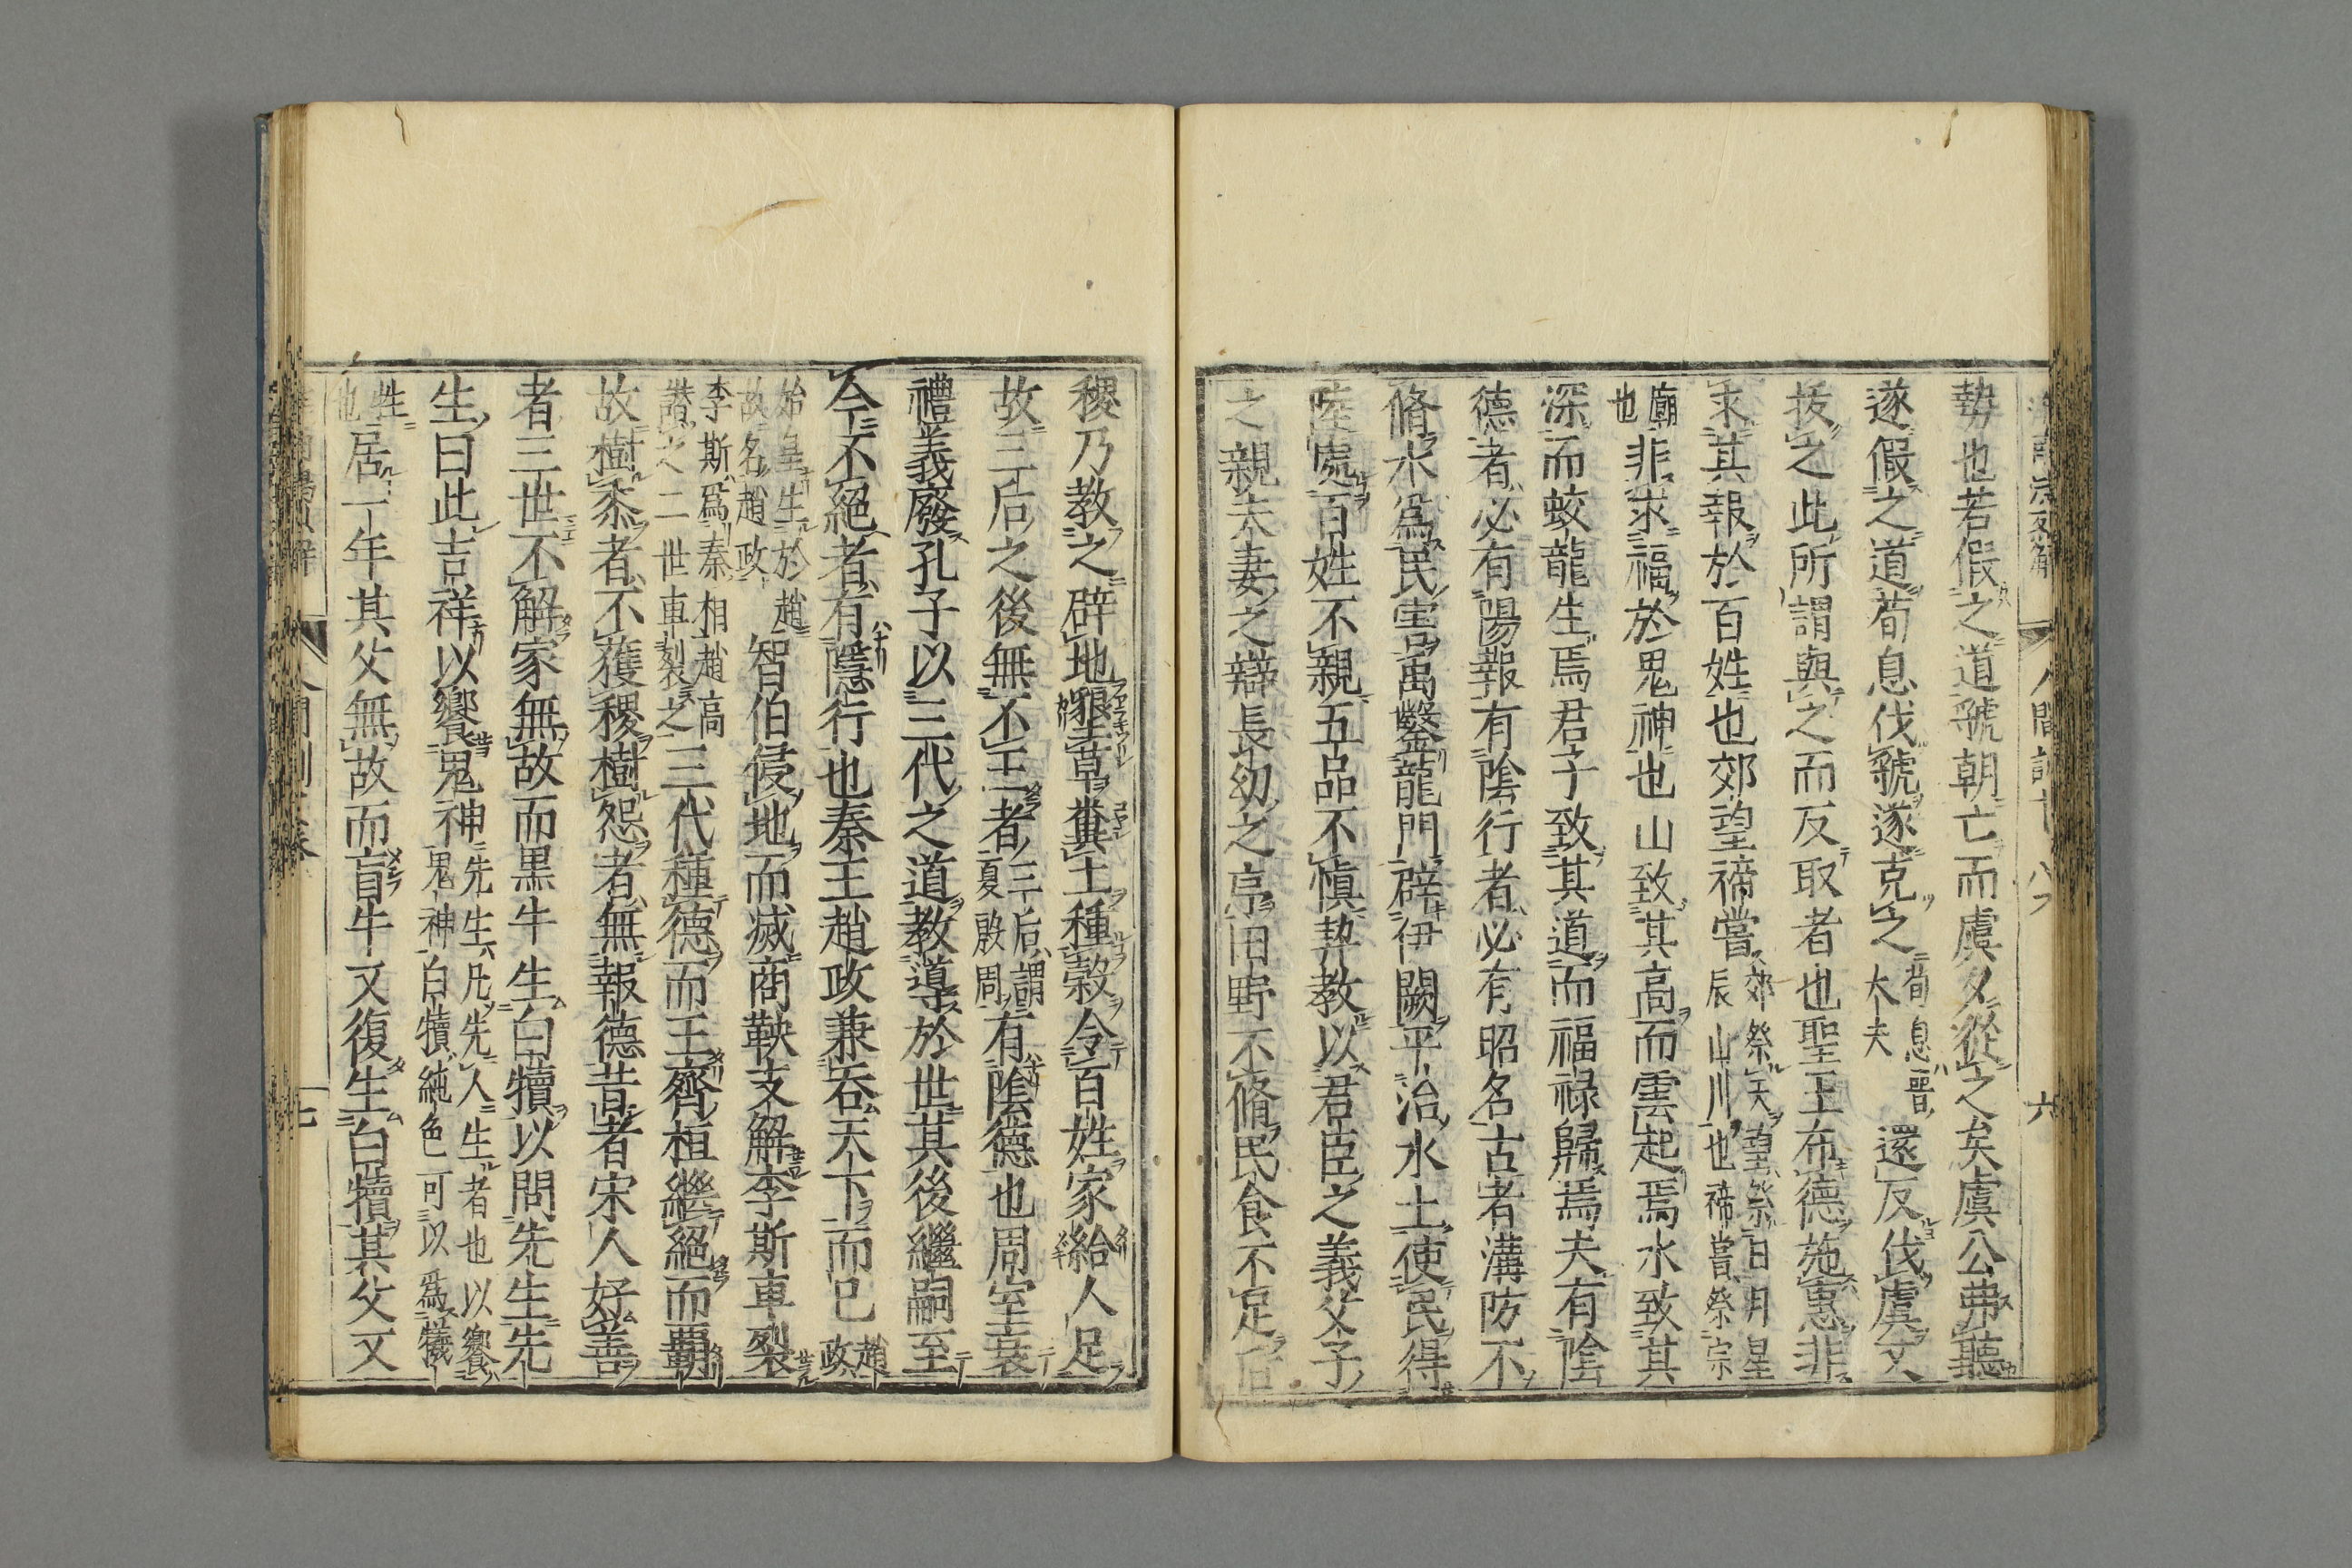 勢也若假之道虢朝亡而虞夕從之矣虞公弗聽
遂假之道荀息伐虢遂克之荀息晉大夫還反伐虞又
拔之此所謂與之而反取者也聖王布德施惠非
求其報於百姓也郊望禘嘗郊祭天望祭日月星辰山川也禘嘗祭宗
廟也非求福於鬼神也山致其高而雲起焉水致其
深而蛟龍生焉君子致其道而福禄歸焉夫有陰
德者必有陽報有陰行者必有昭名古者溝防不
脩水爲民害禹鑿龍門辟伊闕平治水土使民得
陸處百姓不親五品不慎契教以君臣之義父子
之親夫妻之辯長幼之序田野不脩民食不足后
稷乃教之辟地墾草糞土種穀令百姓家給人足
故三后之後無不王者三后謂夏殷周有陰德也周室衰
禮義廢孔子以三代之道教導於世其後繼嗣至
今不絕者有隱行也秦王趙政兼吞天下而已趙政
始皇生於趙故名趙政智伯侵地而滅商鞅支解李斯車裂
李斯爲秦相趙高譖之二世車裂之三代種德而王齊桓繼絕而霸
故樹黍者不獲稷樹怨者無報德昔者宋人好善
者三世不解家無故而黒牛生白犢以問先生先
生曰此吉祥以饗鬼神先生凡先人生者也以饗鬼神白犢純色可以爲犧
牲也居一年其父無故而盲牛又復生白犢其父又
六
七